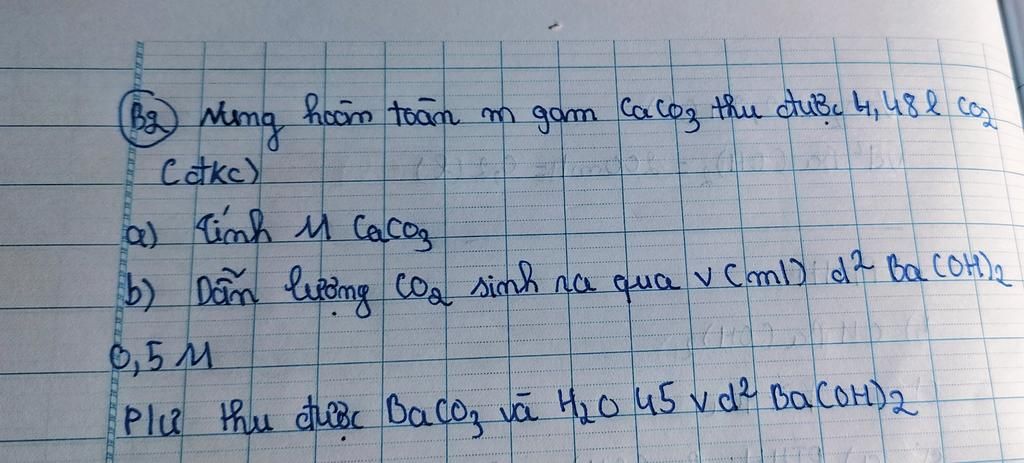 B2 Nung hoàn toàn m gam CaCO3 thu được 4,48l CO2
(đtkc)
a) Tính M CaCO3
b) Dẫn lượng CO2 sinh ra qua V(ml) d² Ba(OH)2
0,5M
Plư thu được BaCO3 và H2O 45 V d² Ba(OH)2